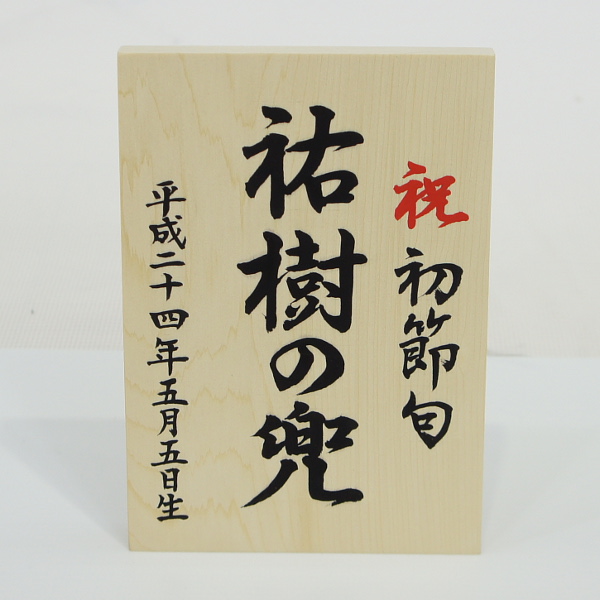 祝初節句
祐樹の兜
平成二十四年五月五日生